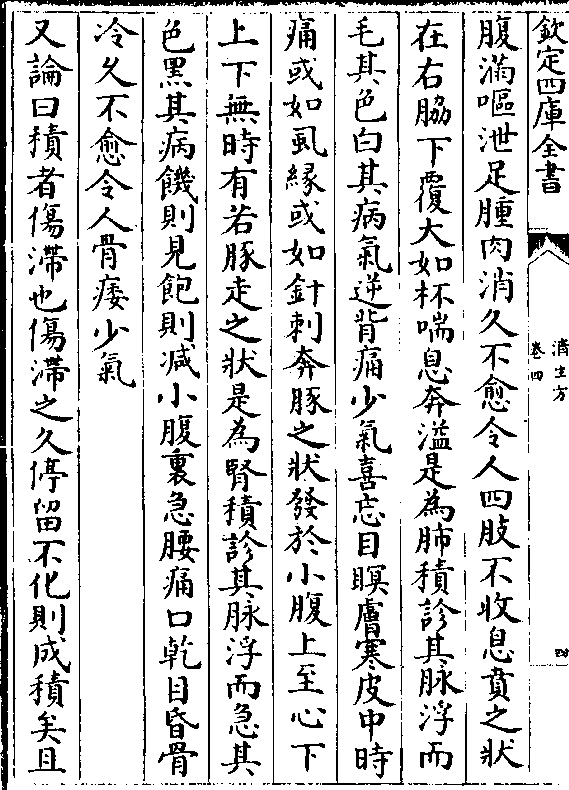 欽定四庫全書
濟生方
卷四
四
腹滿嘔泄足腫肉消久不愈令人四肢不收息賁之狀
在右脇下覆大如杯喘息奔溢是為肺積診其脉浮而
毛其色白其病氣逆背痛少氣喜忘目瞑膚寒皮中時
痛或如虱緣或如針刺奔豚之狀發於小腹上至心下
上下無時有若豚走之狀是為腎積診其脉浮而急其
色黑其病饑則見飽則減小腹裏急腰痛口乾目昏骨
冷久不愈令人骨痿少氣
又論曰積者傷滯也傷滯之久停留不化則成積矣且